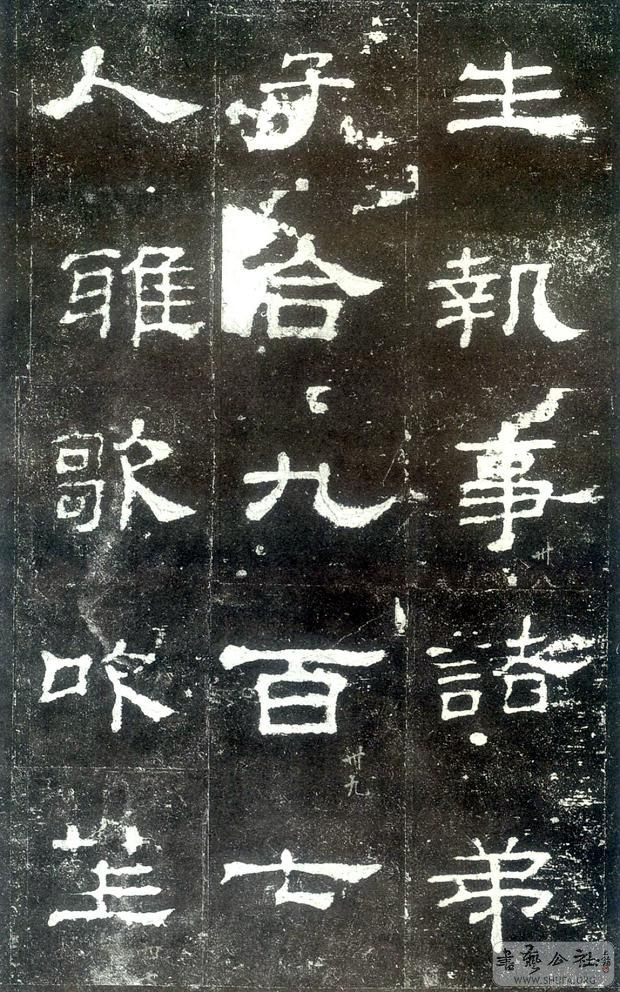 生執事諸弟
子合九百七
人雅歌吹笙
卅八
卅九
書藝公社
WWW.SHUFA.ORG